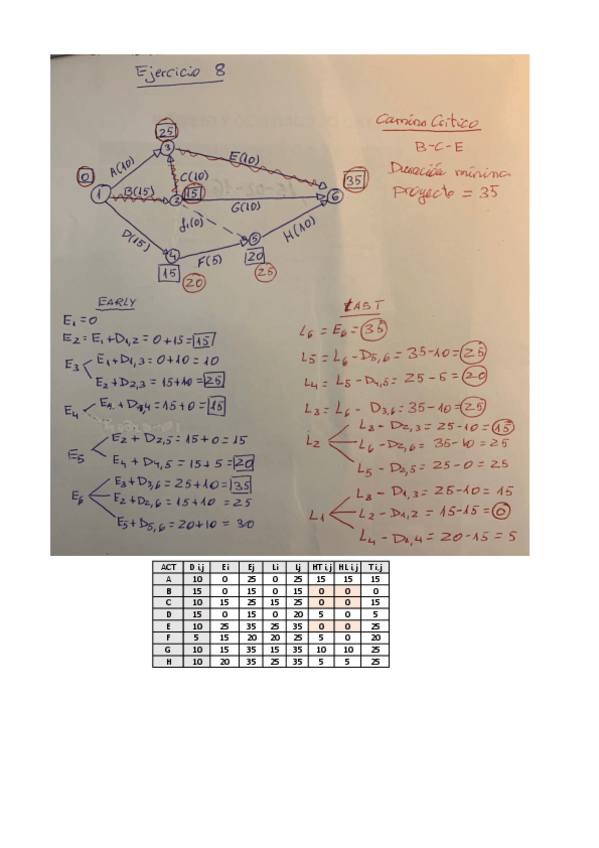 Ejercicio 8
Camino Crítico
B-C-E
Duración mínima
proyecto = 35
25
3
0
1
A(10)
E(10)
C(10)
35
6
B(15)
2
15
G(10)
f1(0)
D(15)
H(10)
4
F(5)
5
15
20
20
25
EARLY
E1 = 0
E2 = E1 + D1,2 = 0+15 = 15
E3
E1 + D1,3 = 0+10 = 10
E2 + D2,3 = 15+10 = 25
E4
E1 + D1,4 = 15+0 = 15
E5
E2 + D2,5 = 15+0 = 15
E4 + D4,5 = 15+5 = 20
E6
E3 + D3,6 = 25+10 = 35
E2 + D2,6 = 15+10 = 25
E5 + D5,6 = 20+10 = 30
LAST
L6 = E6 = 35
L5 = L6 - D5,6 = 35-10 = 25
L4 = L5 - D4,5 = 25-5 = 20
L3 = L6 - D3,6 = 35-10 = 25
L2
L3 - D2,3 = 25-10 = 15
L6 - D2,6 = 35-10 = 25
L5 - D2,5 = 25-0 = 25
L1
L3 - D1,3 = 25-10 = 15
L2 - D1,2 = 15-15 = 0
L4 - D1,4 = 20-15 = 5
ACT D ij Ei Ej Li Lj HT ij HL ij T ij
A 10 0 25 0 25 15 15 15
B 15 0 15 0 15 0 0 0
C 10 15 25 15 25 0 0 15
D 15 0 15 0 20 5 0 5
E 10 25 35 25 35 0 0 25
F 5 15 20 20 25 5 0 20
G 10 15 35 15 35 10 10 25
H 10 20 35 25 35 5 5 25